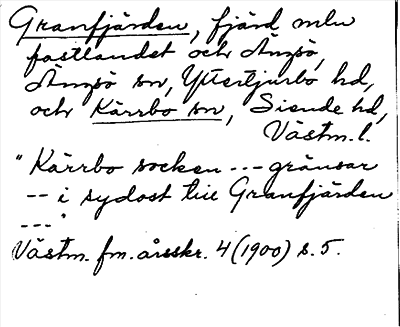 Granfjärden, fjärd mln
fastlandet och Ängsö,
Ängsö sn, Yttertjurbo hd,
och Kärrbo sn, Siende hd,
Västm. l.
"Kärrbo socken --- gränsar
-- i sydost till Granfjärden
---"
Västm. fm. årsskr. 4 (1900) s. 5.